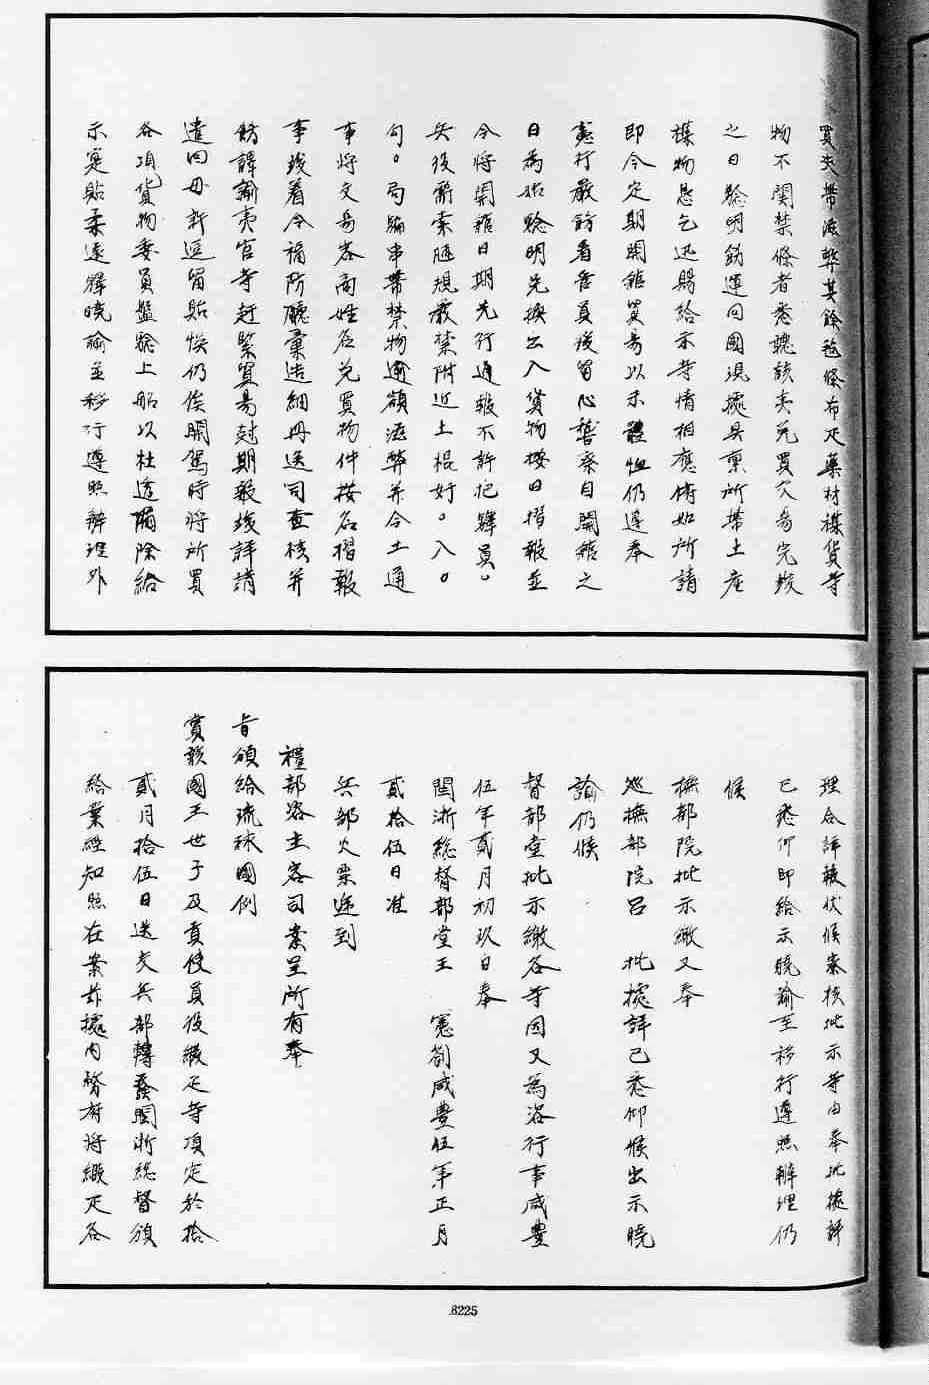 買夾帶滋弊其餘毡條布疋藥材襍貨等
物不關禁條者悉聽該夷兌買欠易完竣
之日驗明飭運回國現據具稟所帶土産
襍物懇乞迅賜給示等情相應俯如所請
即令定期開館貿易以示體恤仍遵奉
憲行嚴飭看委員役留心稽察自開館之
日為始驗明兌換出入貨物按日摺報並
令將開館日期先行通報不許把驛員。
兵役需索陋規嚴禁附近土棍奸。入。
勾。局騙串帶禁物逾額滋弊并令土通
事將交易客商姓名兌買物件按名摺報
事竣着令福防廳彙造細冊送司查核并
飭譯諭夷官等赶緊買易尅期報竣詳請
遣回毋新逗留貽悞仍俟開駕時將所買
各項貨物委員盤驗上船以杜透漏除給
示寔貼柔遠驛曉諭並移行遵照辦理外
理合詳報伏候察核批示等由奉批據詳
已悉仰即給示曉諭至移行遵照辦理仍
候
撫部院批示繳又奉
巡撫部院呂　批據詳已悉仰候出示曉
諭仍候
督部堂批示繳各等因又為咨行事咸豐
伍年貳月初玖日奉
閩浙総督部堂王　憲劄咸豐伍年正月
貳拾伍日准
兵部火票逓到
禮部咨主客司案呈所有奉
旨頒給琉球國例
賞該國王世子及貢使員役緞疋等項定於拾
貳月拾伍日送交兵部轉發閩浙総督頒
給業經知照在案茲據内務府將緞疋各
6225